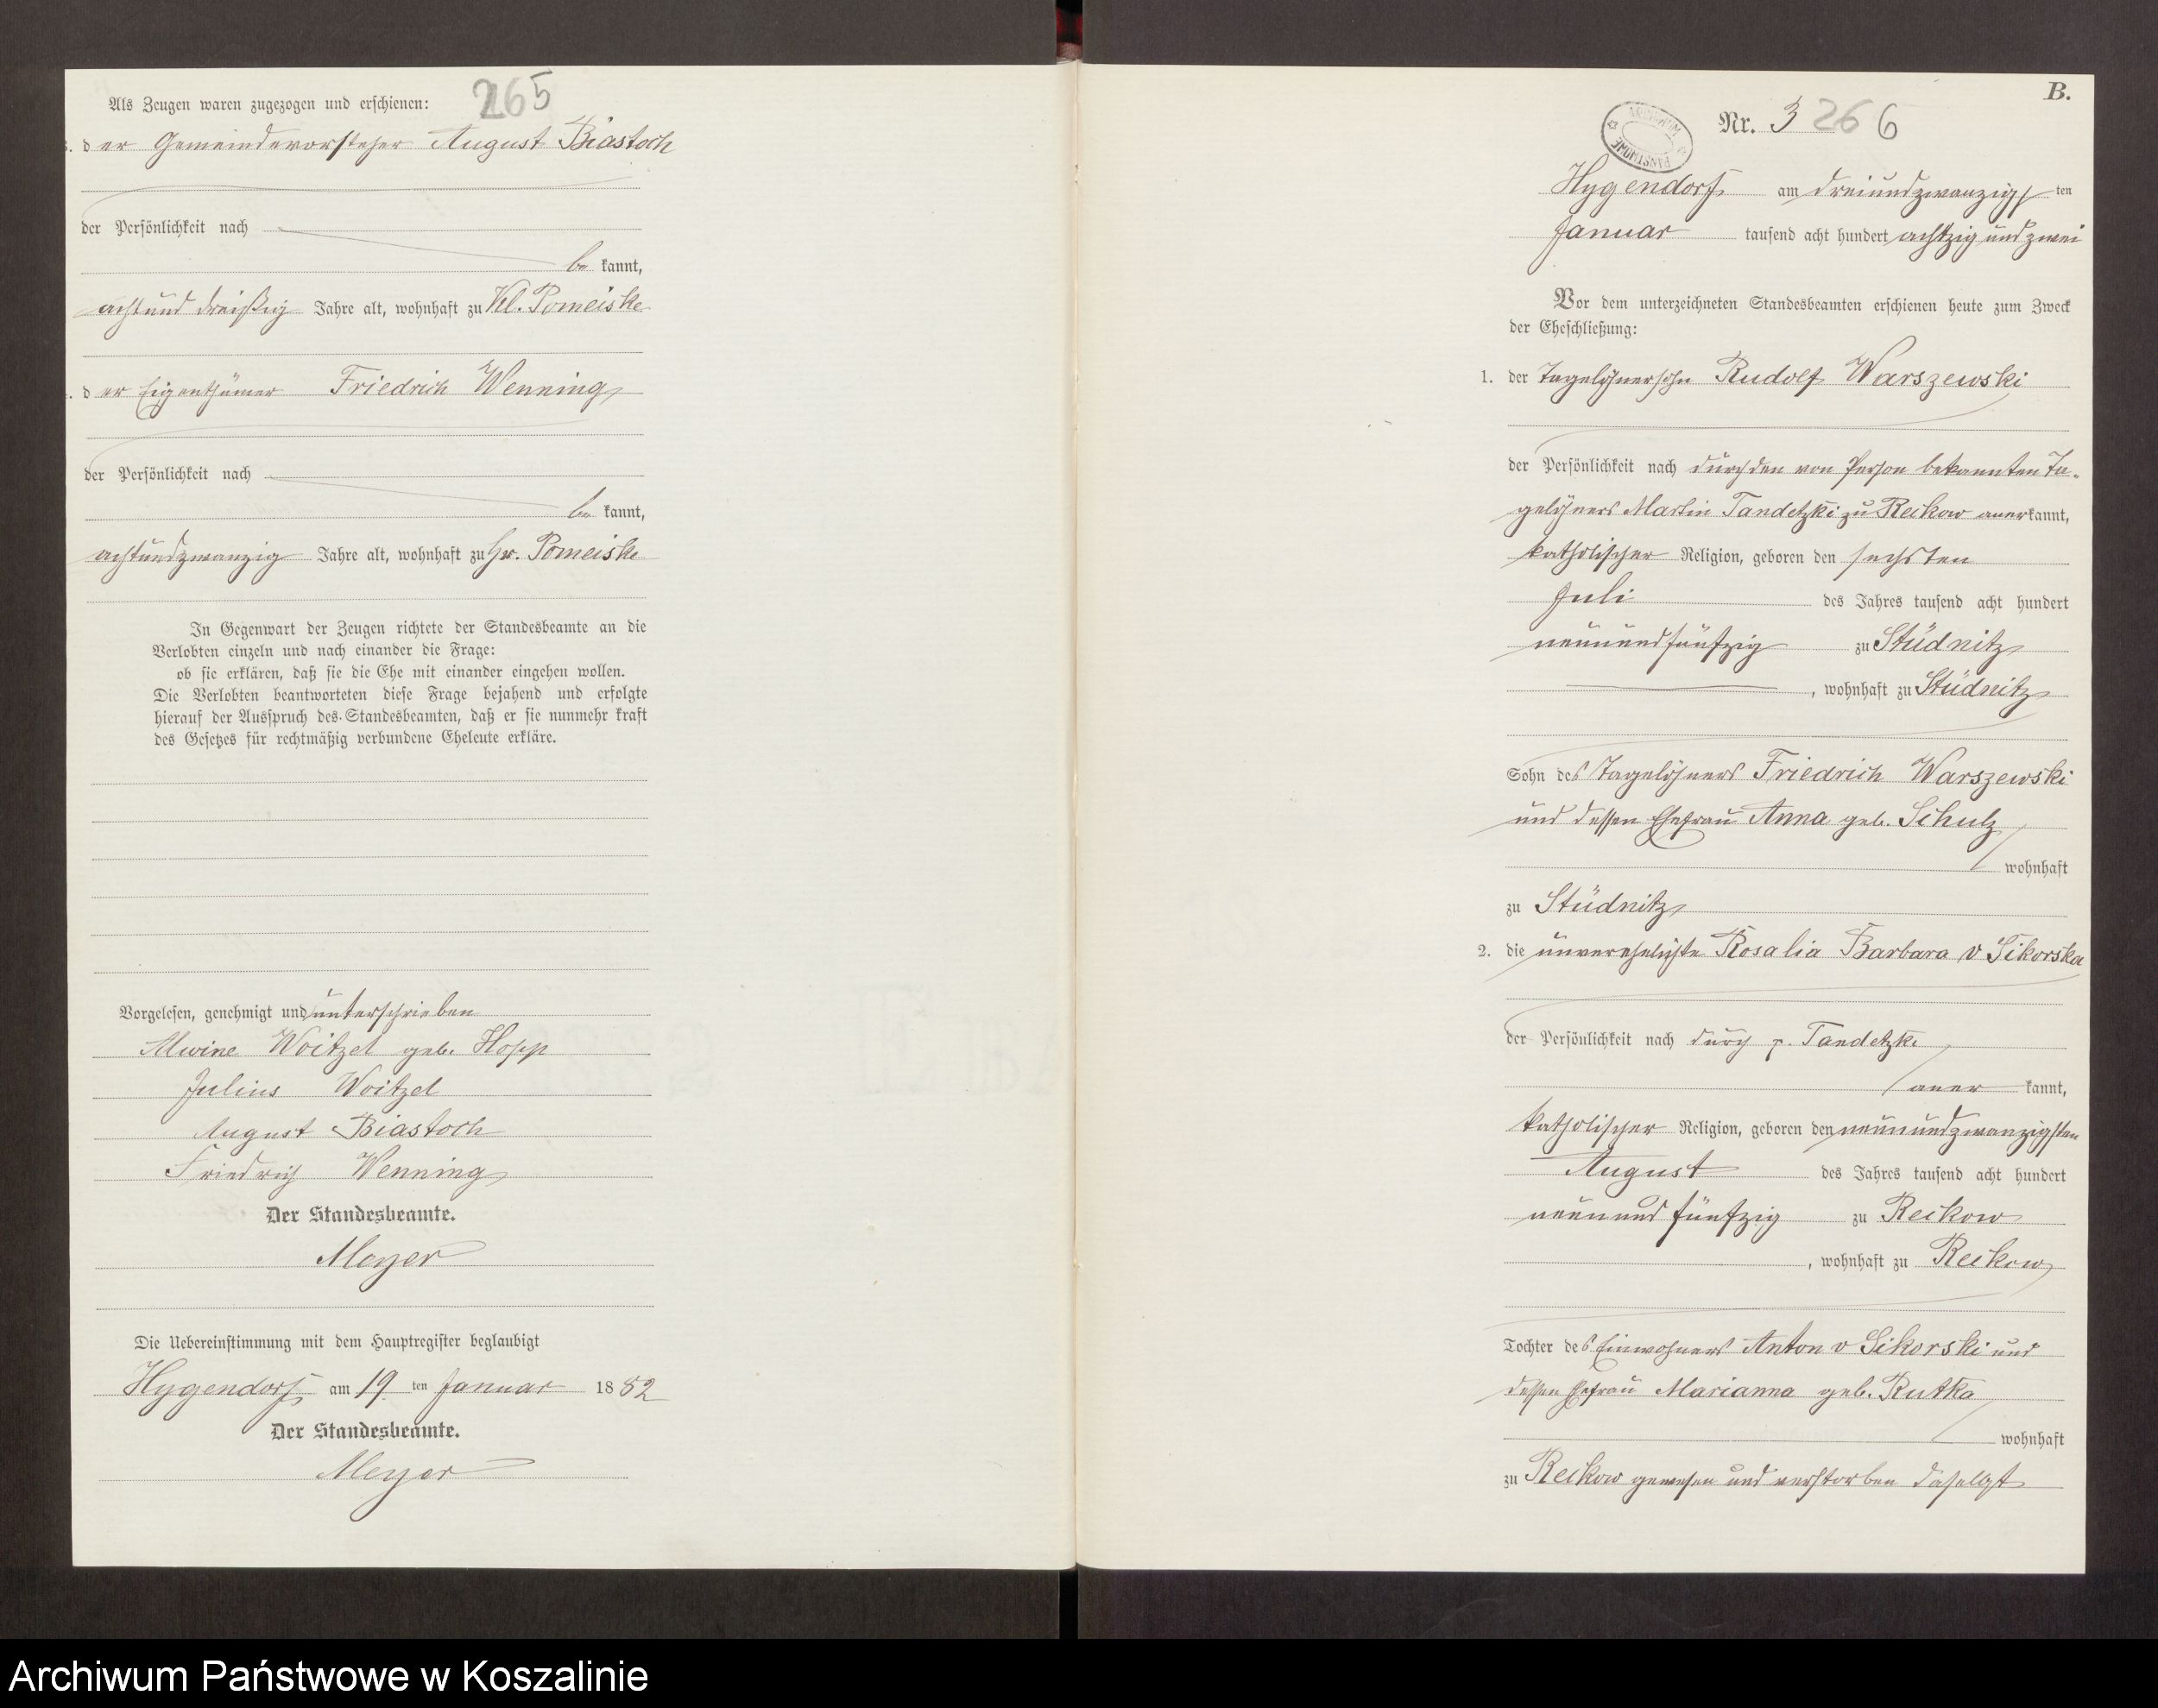 265
Als Zeugen waren zugezogen und erschienen:
der Gemeindevorsteher August Biastoch
der Persönlichkeit nach
be kannt,
achtund dreißig Jahre alt, wohnhaft zu Kl. Pomeiske
der Eigenthümer Friedrich Wenning
der Persönlichkeit nach
be kannt,
achtundzwanzig Jahre alt, wohnhaft zu Gr. Pomeiske
In Gegenwart der Zeugen richtete der Standesbeamte an die
Verlobten einzeln und nach einander die Frage:
ob sie erklären, daß sie die Ehe mit einander eingehen wollen.
Die Verlobten beantworteten diese Frage bejahend und erfolgte
hierauf der Ausspruch des Standesbeamten, daß er sie nunmehr kraft
des Gesetzes für rechtmäßig verbundene Eheleute erkläre.
Vorgelesen, genehmigt und unterschrieben
Alwine Woitzel geb. Hopp
Julius Woitzel
August Biastoch
Friedrich Wenning
Der Standesbeamte.
Meyer
Die Uebereinstimmung mit dem Hauptregister beglaubigt
Hygendorf am 19 ten Januar 1882
Der Standesbeamte.
Meyer
B.
Nr. 3 266
Hygendorf am dreiundzwanzigsten
Januar tausend acht hundert achtzig und zwei
Vor dem unterzeichneten Standesbeamten erschienen heute zum Zweck
der Eheschließung:
1. der Tagelöhnersohn Rudolf Warszewski
der Persönlichkeit nach durch den von Person bekannten Ta-
gelöhners Martin Tandetzki zu Reckow anerkannt,
katholischer Religion, geboren den sechsten
Juli des Jahres tausend acht hundert
neunundfünfzig zu Stüdnitz
, wohnhaft zu Stüdnitz
Sohn des Tagelöhners Friedrich Warszewski
und dessen Ehefrau Anna geb. Schulz
wohnhaft
zu Stüdnitz
2. die unverehelichte Rosalia Barbara v Sikorska
der Persönlichkeit nach durch p. Tandetzki
aner kannt,
katholischer Religion, geboren den neunundzwanzigsten
August des Jahres tausend acht hundert
neunund fünfzig zu Reckow
, wohnhaft zu Reckow
Tochter des Einwohners Anton v Sikorski und
dessen Ehefrau Marianna geb. Rutka
wohnhaft
zu Reckow gewesen und verstorben daselbst
Archiwum Państwowe w Koszalinie